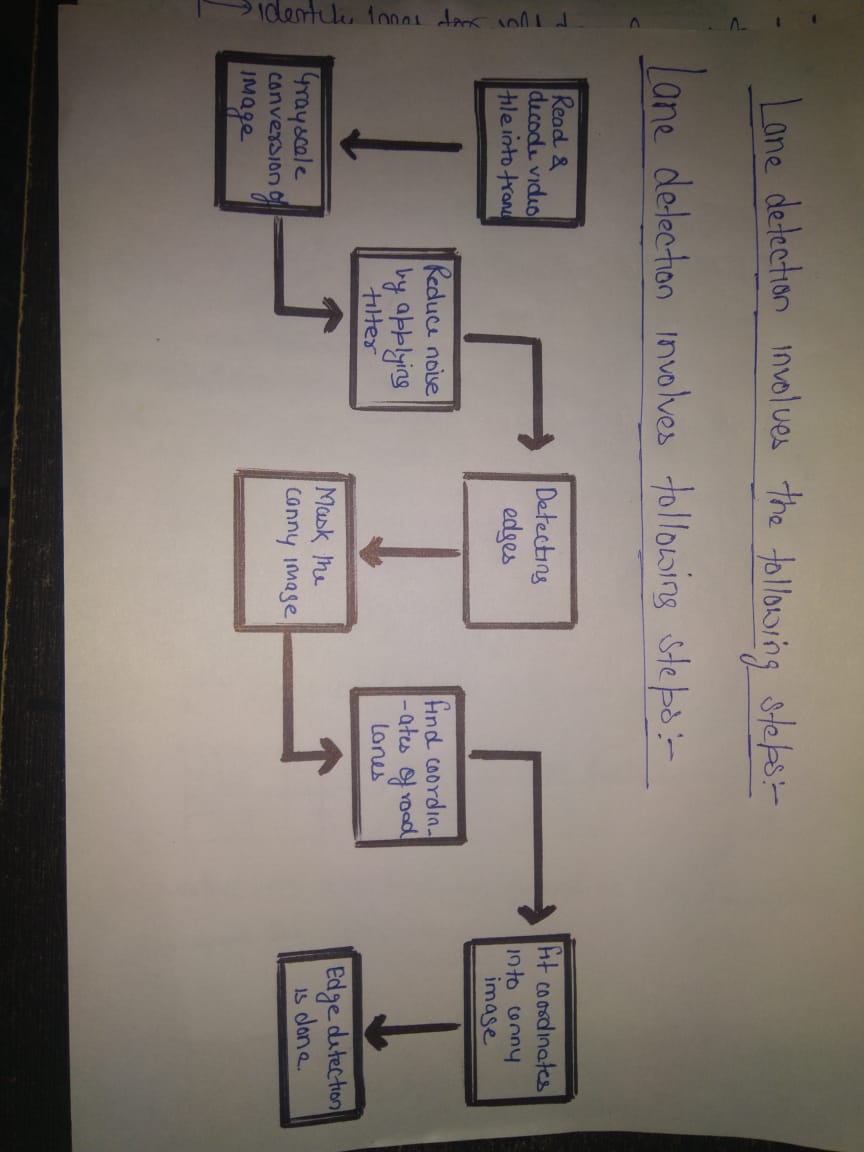 Lane detection involves the following steps:-
Lane detection involves following steps:-
Read &
decode video
file into fram
Grayscale
conversion of
image
Reduce noise
by applying
filter
Detecting
edges
Mask the
canny image
find coordin-
-ates of road
lanes
fit coordinates
into canny
image
Edge detection
is done.